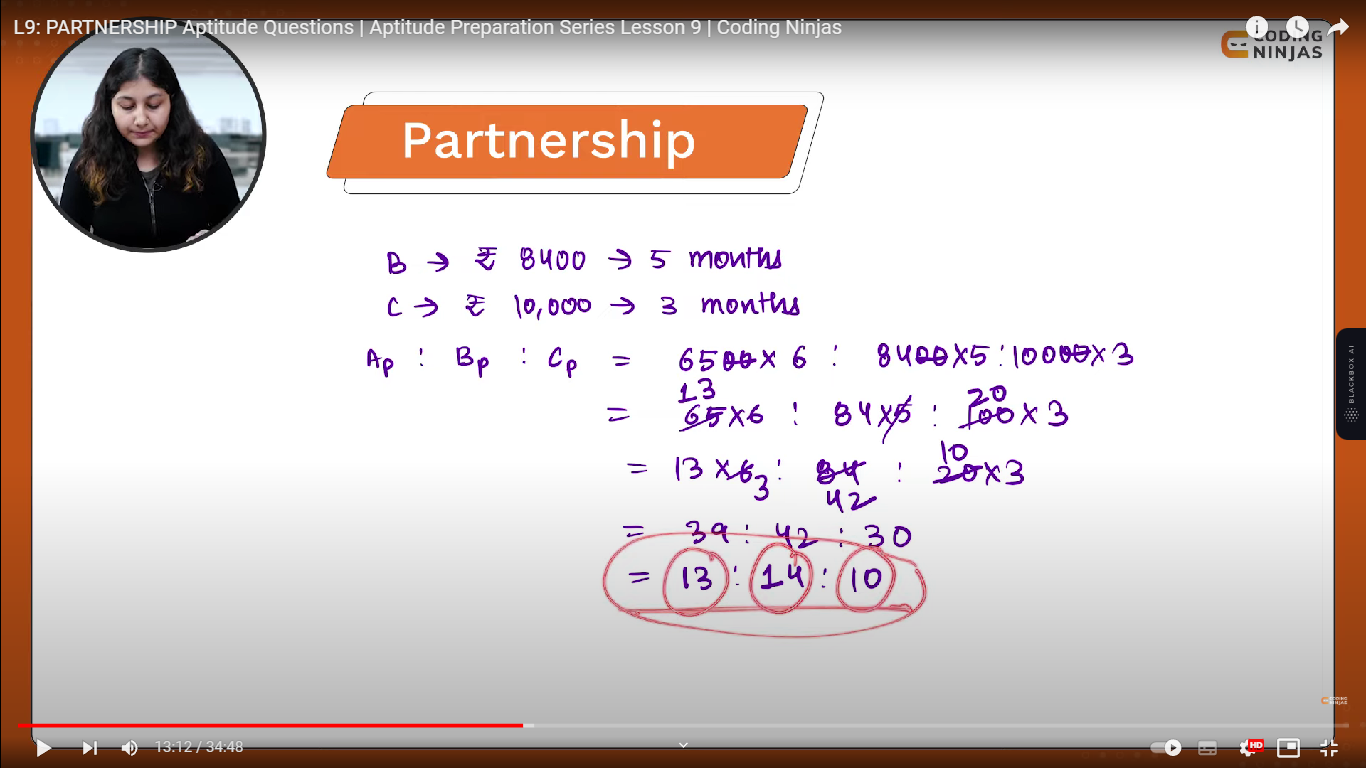 L9: PARTNERSHIP Aptitude Questions | Aptitude Preparation Series Lesson 9 | Coding Ninjas
CODING
NINJAS
Partnership
B → ₹ 8400 → 5 months
C → ₹ 10,000 → 3 months
Ap : Bp : Cp = 6500 x 6 : 8400 x 5 : 10000 x 3
13 20
= 65 x 6 : 84 x 5 : 100 x 3
10
= 13 x 6 3 : 84 : 20 x 3
42
= 39 : 42 : 30
= 13 : 14 : 10
BLACKBOX AI
CODING
NINJAS
13:12 / 34:48
HD